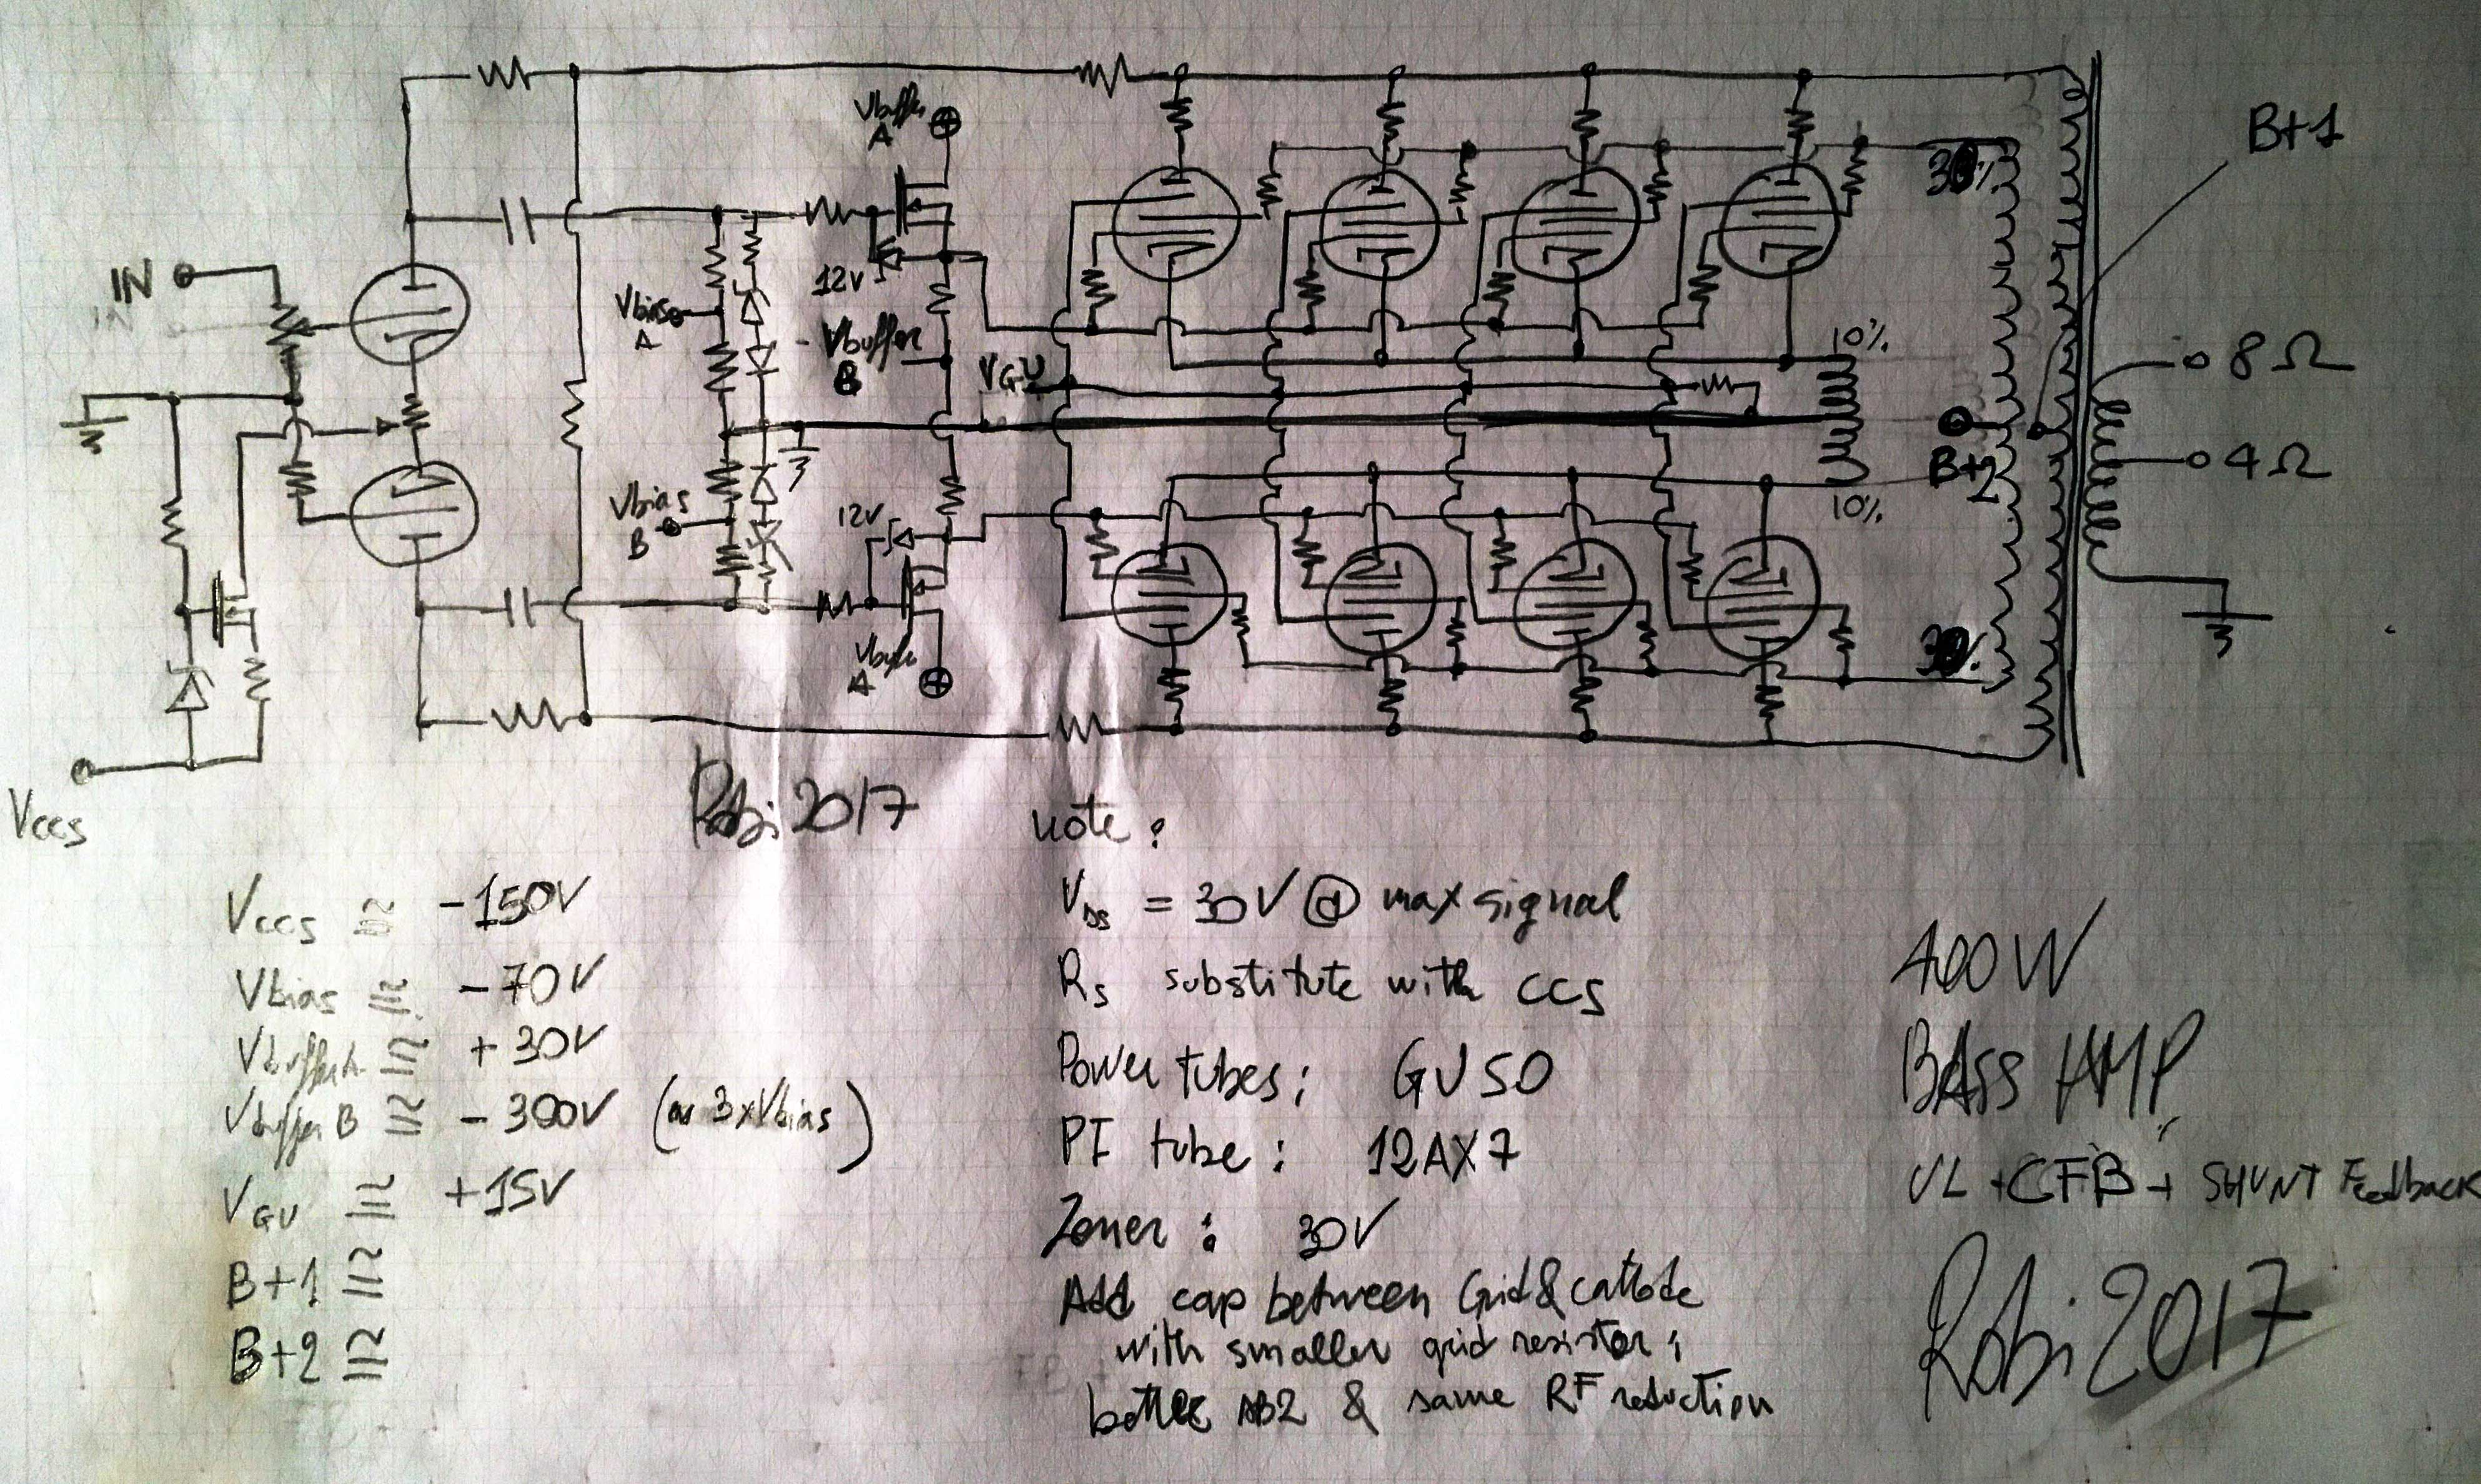 Vbuffer
A
B+1
30%
IN
12V
Vbias
A
- Vbuffer
B
VGU
10%
8Ω
B+2
4Ω
Vbias
B
12V
10%
A
30%
Vccs
Robi 2017
note :
Vccs ≅ -150V
VDS = 30V @ max signal
400W
Vbias ≅ -70V
RS substitute with CCS
BASS AMP
VbufferA ≅ +30V
Power tubes : GU50
VbufferB ≅ -300V (or 3xVbias)
PI tube : 12AX7
UL + CFB + SHUNT Feedback
VGU ≅ +15V
Zener : 30V
B+1 ≅
Add cap between Grid & cathode
Robi 2017
B+2 ≅
with smaller grid resistor :
better AB2 & same RF reduction